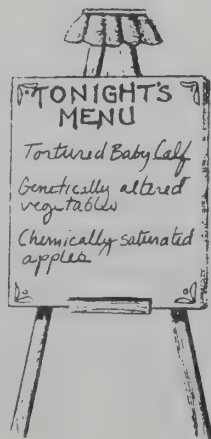 TONIGHT'S
MENU
Tortured Baby Calf
Genetically altered
vegetables
Chemically saturated
apples